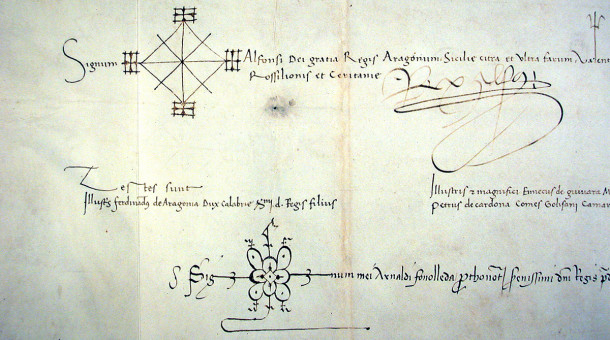 Signum Alfonsi Dei gratia Regis Aragonum Sicilie citra et ultra farum Valent
Rossilionis et Ceritanie
Rex Alfonsus
Testes sunt
Illustris ferdinandus de Aragonia Dux Calabrie d. Regis filius
Illustris z magnifici Ennecus de guivara M
Petrus de cardona Comes Golisani Camar
Sig num mei Arnaldi fonolleda prothonot serenissimi dni Regis